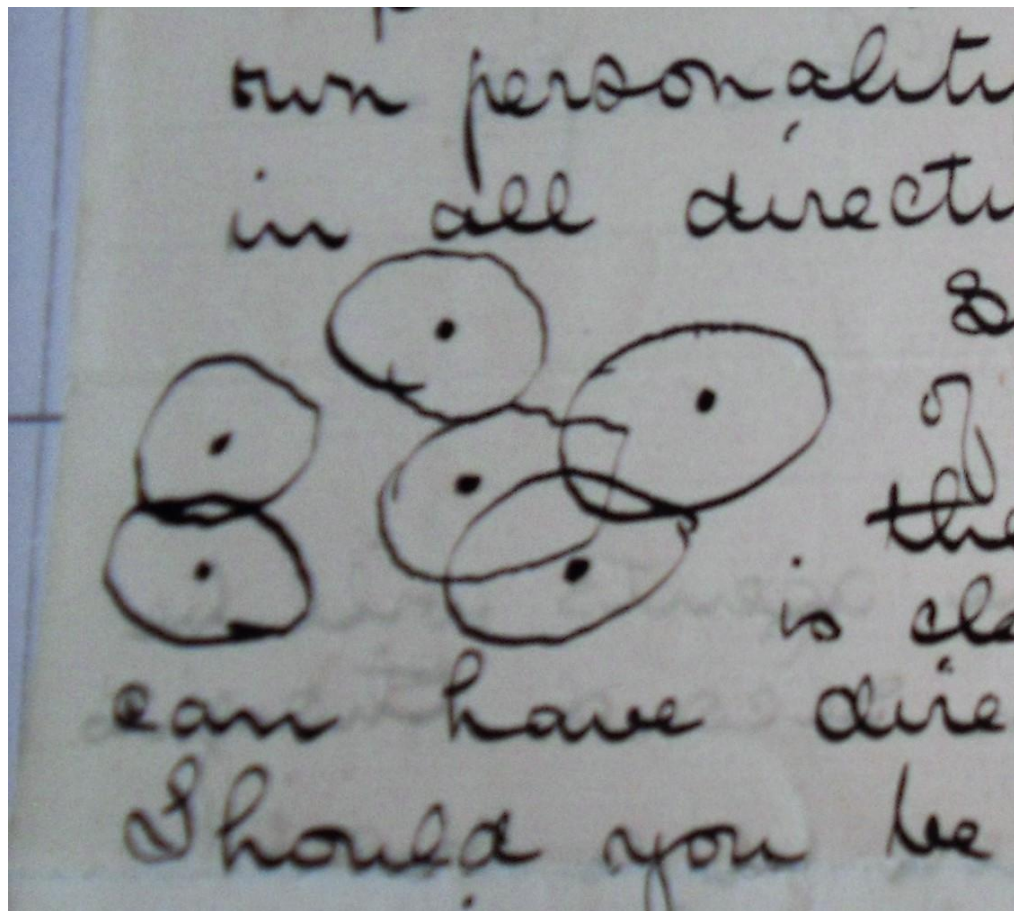 own personality
in all directi
s
of
the
is cle
can have dire
Should you be